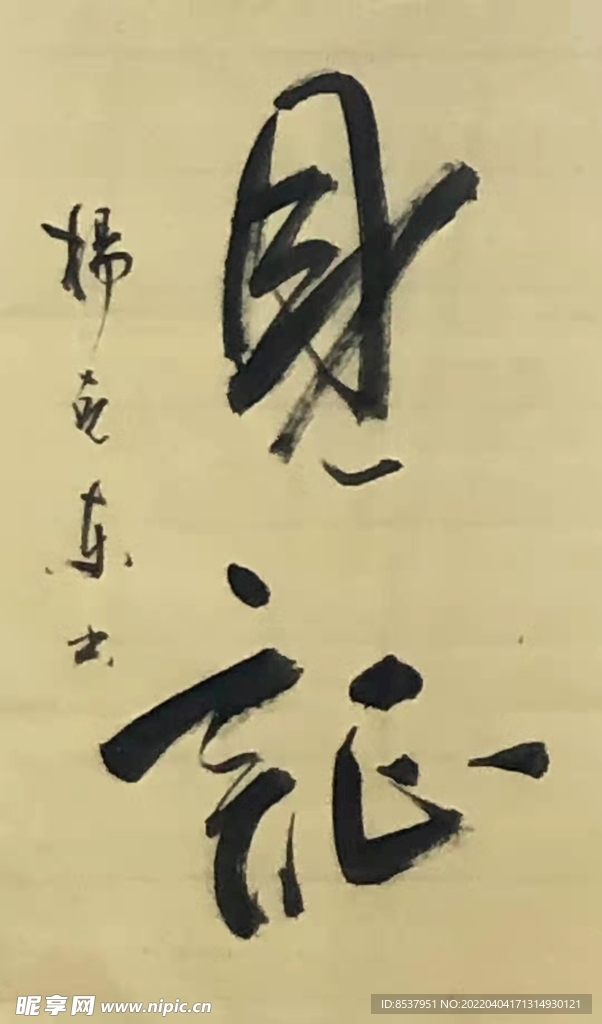 身証
楊克東书
昵享网 www.nipic.cn
ID:8537951 NO:20220404171314930121